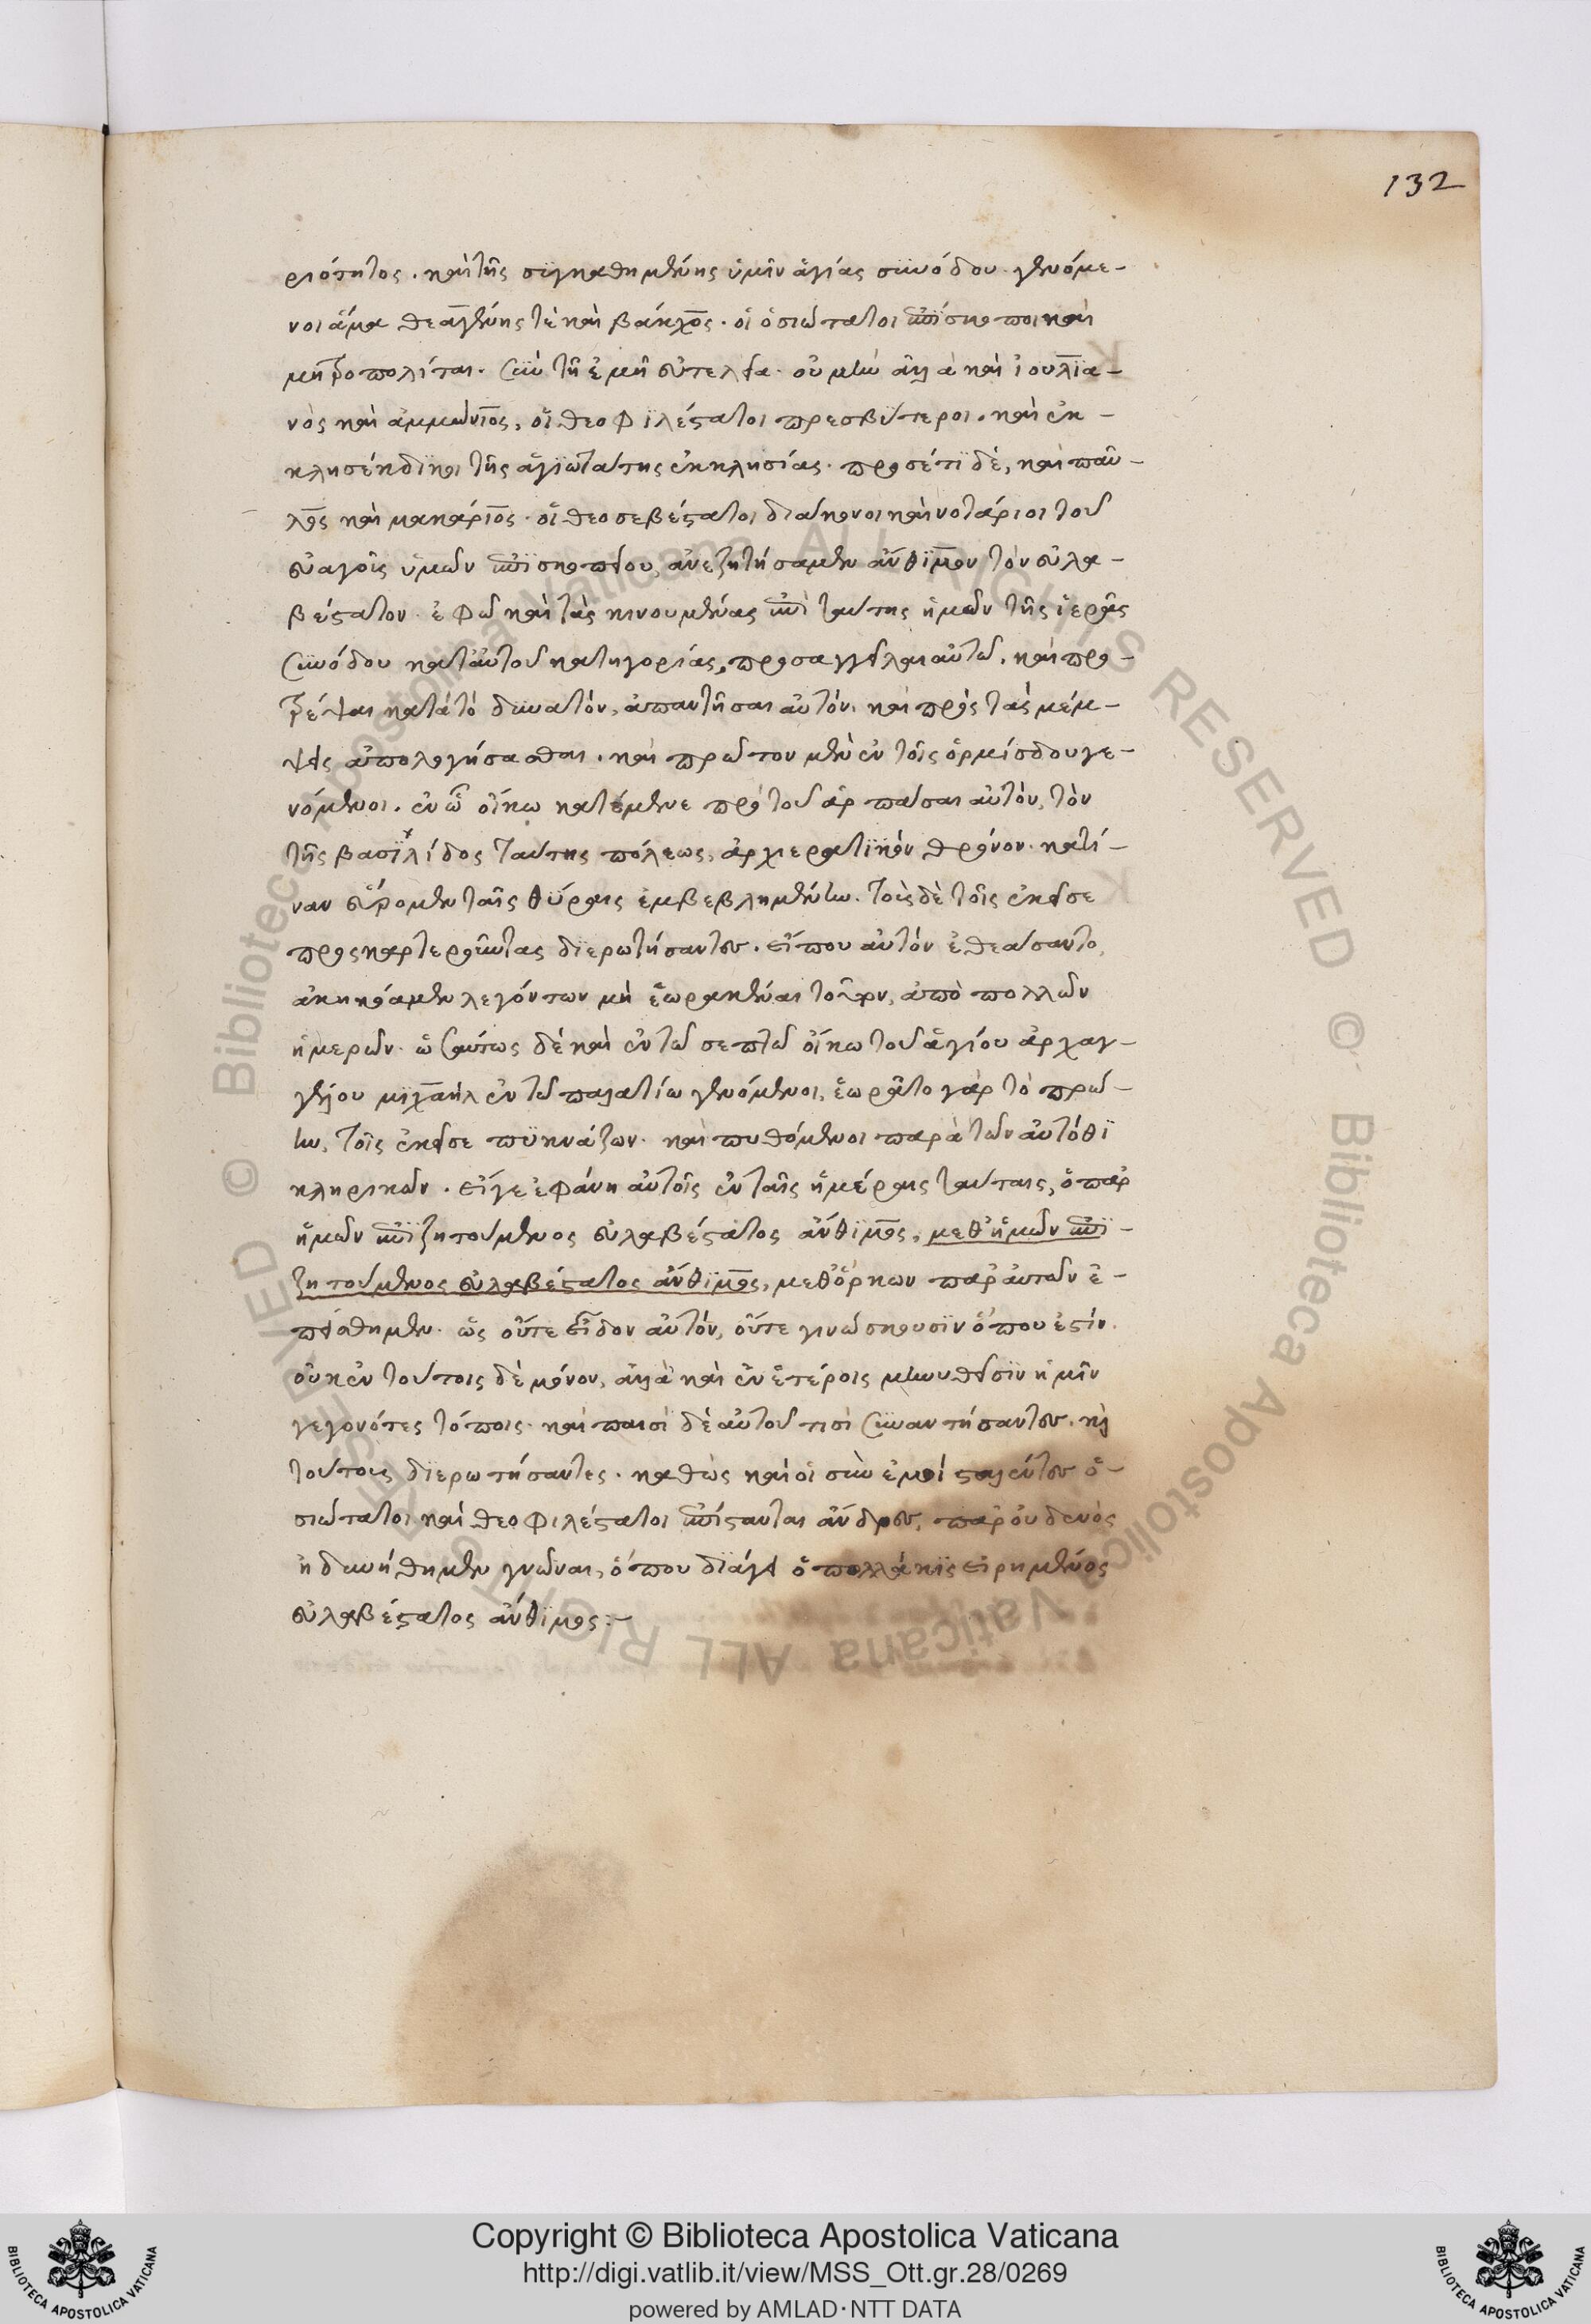 132
ριότητος. καὶ τῆς συγκαθημένης ὑμῖν ἁγίας συνόδου. γενόμε-
νοι ἅμα θεαγένης τὲ καὶ βάκχος. οἱ ὁσιώτατοι ἐπίσκοποι καὶ
μητροπολίται. σὺν τῇ ἐμῇ εὐτελεία. οὐ μὴν ἀλλὰ καὶ ἰουλϊα-
νὸς καὶ ἀμμώνιος, οἱ θεοφιλέστατοι πρεσβύτεροι. καὶ ἐκ-
κλησέκδικοι τῆς ἁγιωτάτης ἐκκλησίας. προσέτι δὲ, καὶ παῦ-
λος καὶ μακάριος. οἱ θεοσεβέστατοι διάκονοι καὶ νοτάριοι τοῦ
εὐαγοῖς ὑμῶν ἐπισκοπείου, ἀνεζητήσαμεν ἄνθιμον τὸν εὐλα-
βέστατον. ἐφῶ καὶ τὰς κινουμένας ἐπὶ ταύτης ἡμῶν τῆς ἱερᾶς
συνόδου κατ᾽ αὐτοῦ κατηγορίας, προσαγγεῖλαι αὐτῶ. καὶ προ-
τρέψαι κατὰ τὸ δυνατόν, ἀπαντῆσαι αὐτόν. καὶ πρὸς τὰς μέμ-
ψεις ἀπολογήσασθαι. καὶ πρῶτον μὲν ἐν τοῖς ὁρμίσδου γε-
νόμενοι. ἐν ᾧ οἴκω κατέμενε πρὸ τοῦ ἁρπάσαι αὐτόν, τὸν
τῆς βασιλίδος ταύτης πόλεως, ἀρχιερατικὸν θρόνον. κατί-
ναν εὕρομεν ταῖς θύραις ἐμβεβλημένην. τοὺς δὲ τοῖς ἐκεῖσε
προσκαρτεροῦντας διερωτήσαντες. εἴπου αὐτὸν ἐθεάσαντο,
ἀκηκόαμεν λεγόντων μὴ ἑωρακέναι τοῦτον, ἀπὸ πολλῶν
ἡμερῶν. ὡσαύτως δὲ καὶ ἐν τῶ σεπτῶ οἴκω τοῦ ἁγίου ἀρχαγ-
γέλου μιχαὴλ ἐν τῶ παλατίω γενόμενοι, ἑωρᾶτο γὰρ τὸ πρώ-
ην, τοῖς ἐκεῖσε πυκνάζων. καὶ πυθόμενοι παρὰ τῶν αὐτόθι
κληρικῶν. εἴγε ἐφάνη αὐτοῖς ἐν ταῖς ἡμέραις ταύταις, ὁ παρ᾽
ἡμῶν ἐπιζητούμενος εὐλαβέστατος ἄνθιμος, μεθ᾽ ἡμῶν ἐπι-
ζητούμενος εὐλαβέστατος ἄνθιμος, μεθ᾽ ὅρκων παρ᾽ αὐτῶν ἐ-
πείσθημεν. ὡς οὔτε εἶδον αὐτὸν, οὔτε γινώσκουσιν ὅπου ἐστίν.
οὐκ ἐν τούτοις δὲ μόνον, ἀλλὰ καὶ ἐν ἑτέροις μηνυθεῖσιν ἡμῖν
γεγονότες τόποις. καὶ παισὶ δὲ αὐτοῦ τισὶ συναντήσαντες. καὶ
τούτοις διερωτήσαντες. καθὼς καὶ οἱ σὺν ἐμοὶ σταλέντες ὁ-
σιώτατοι καὶ θεοφιλέστατοι ἐπίστανται ἄνδρες, παρ᾽ οὐδενὸς
ἠδυνήθημεν γνῶναι, ὅπου διάγει ὁ πολλάκις εἰρημένος
εὐλαβέστατος ἄνθιμος:-
Copyright © Biblioteca Apostolica Vaticana
http://digi.vatlib.it/view/MSS_Ott.gr.28/0269
powered by AMLAD·NTT DATA
BIBLIOTECA APOSTOLICA VATICANA
BIBLIOTECA APOSTOLICA VATICANA
© Biblioteca Apostolica Vaticana ALL RIGHTS RESERVED
© Biblioteca Apostolica Vaticana ALL RIGHTS RESERVED